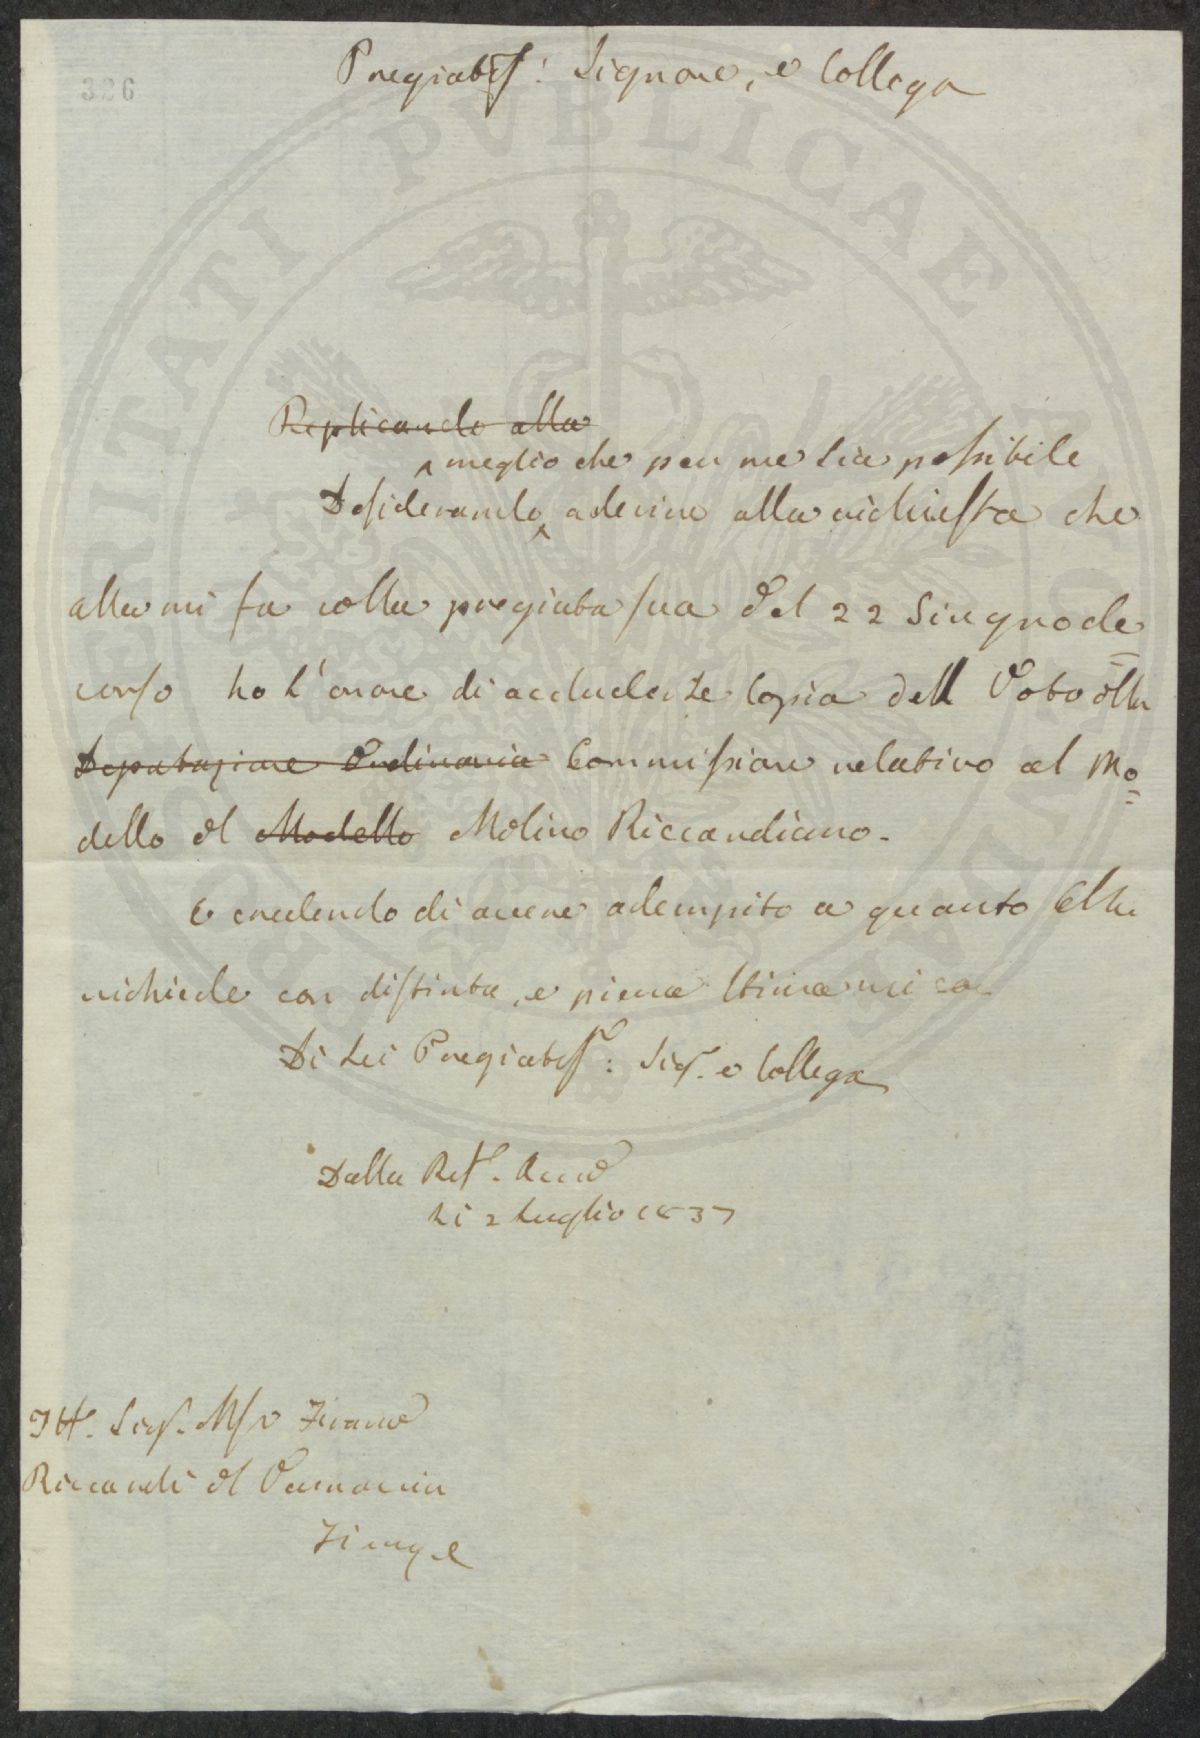 326
PROSPERITATI PUBLICAE
Pregiabiss: Signore, e Collega
Replicando alla
meglio che per me sia possibile
Desiderando aderire alla richiesta che
alla mi fa colla pregiata sua del 22 Giugno de
corso ho l'onore di accluderle Copia dell Voto della
Deputazione Ordinaria Commissione relativo al Mo
dello del Modello Molino Riccardiano.
E credendo di avere adempito a quanto Ella
richiede con distinta, e piena stima mi
Di Lei Pregiabiss: Sig. e Collega
Dalla Acc.
Li 2 Luglio 1837
Ill. Sig. March
Riccardi del Vernaccia
Firenze